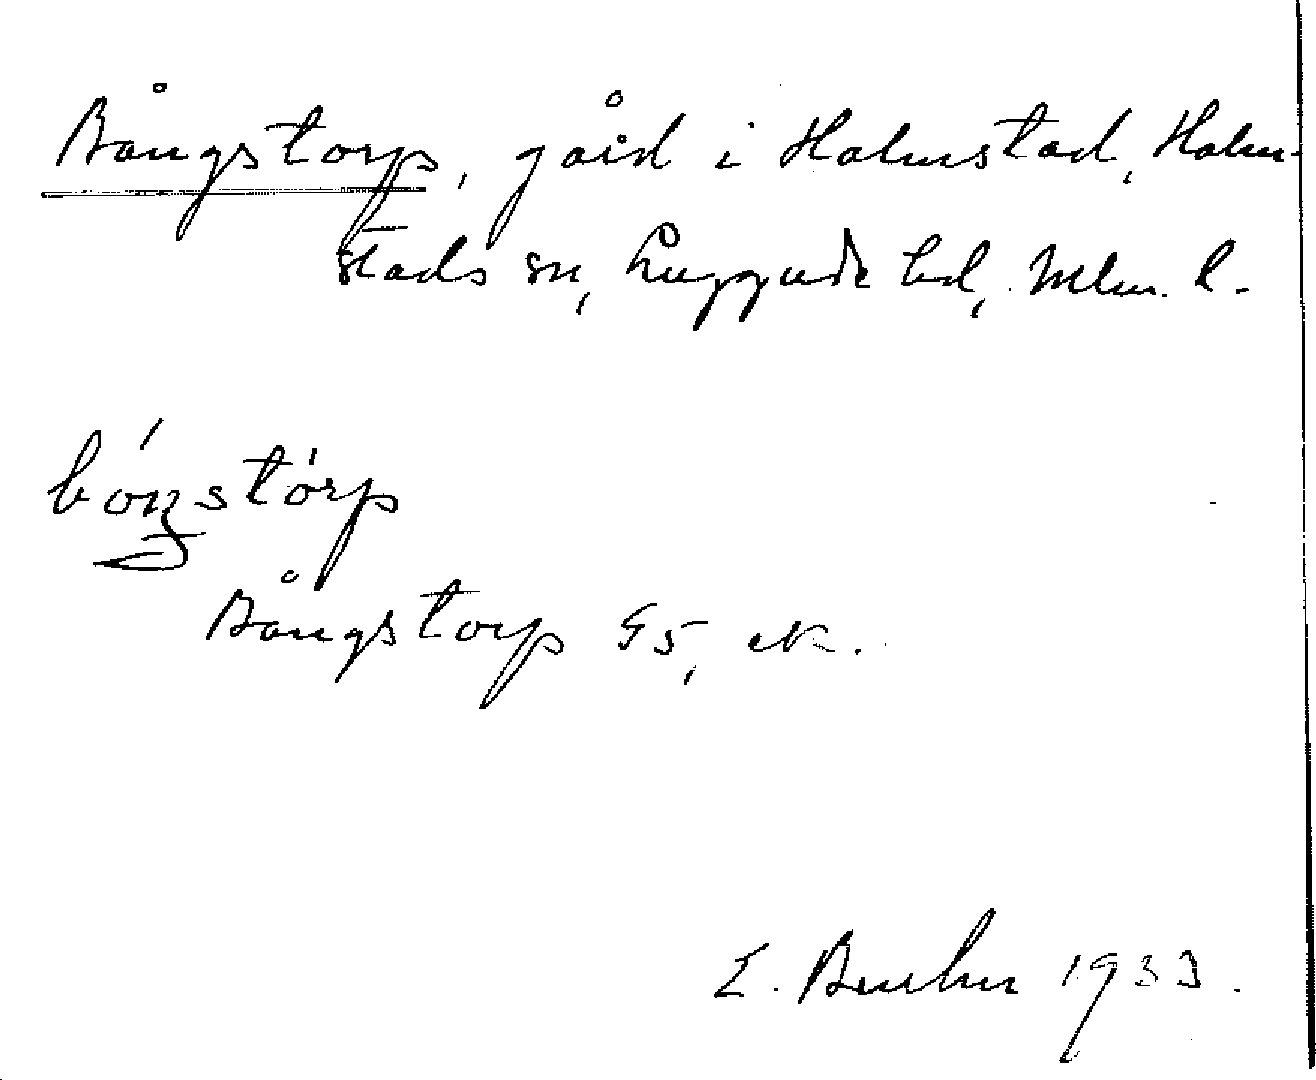 Bångstorp, gård i Halmstad, Halm-
stads sn, Luggude hd, Mlm. l.
bóŋstórp
Bångstorp G5, ek.
E. 1933.